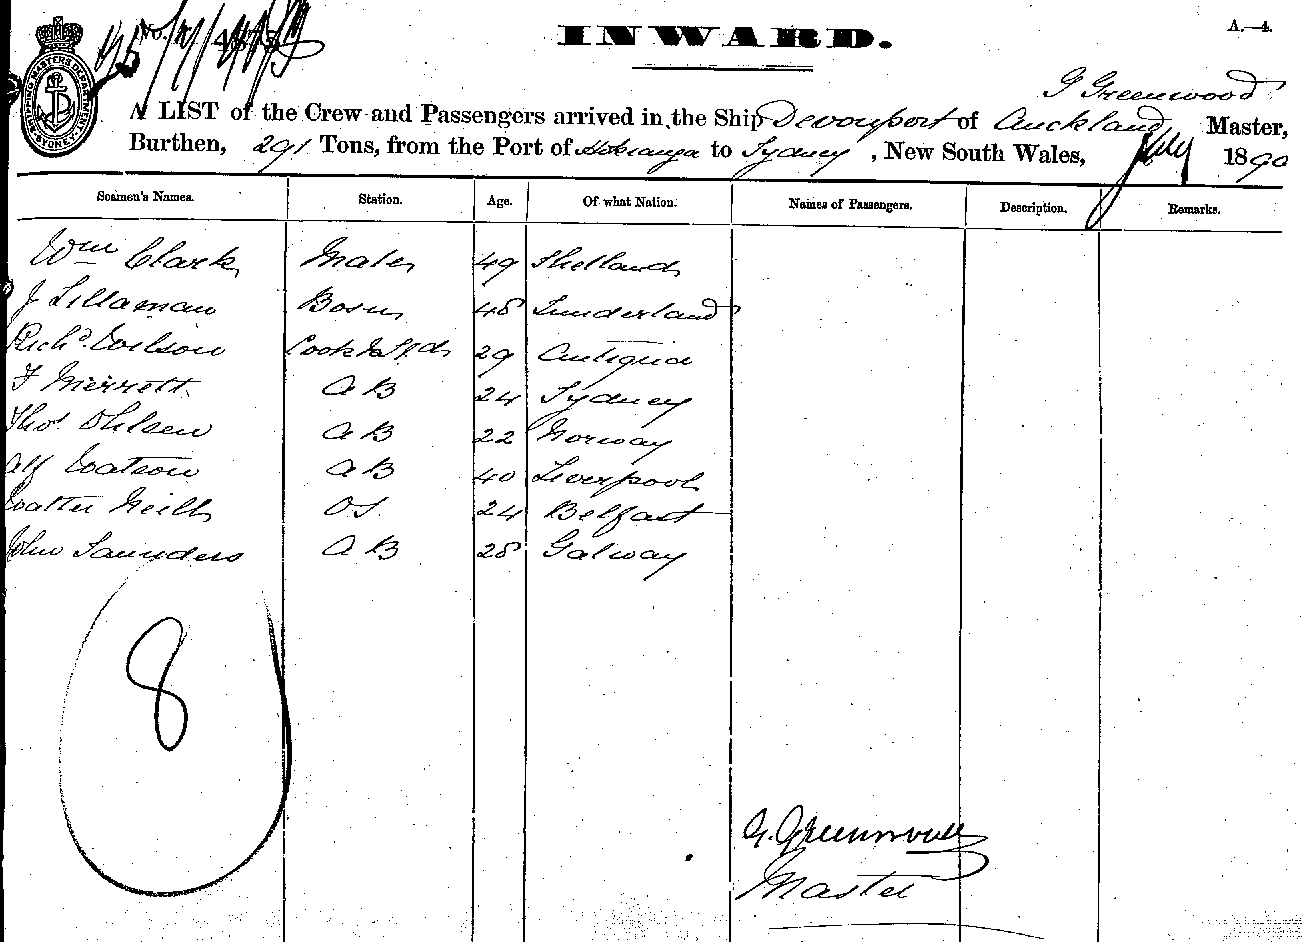 INWARD.
A.—4.
No.
SHIPPING MASTERS DEPARTMENT
SYDNEY
G Greenwood
A LIST of the Crew and Passengers arrived in the Ship Devonport of Auckland Master,
Burthen, 291 Tons, from the Port of Hokianga to Sydney, New South Wales, July 1890
Seamen's Names. Station. Age. Of what Nation. Names of Passengers. Description. Remarks.
Wm Clark Mate 49 Shetland
J Lillaman Bosun 48 Sunderland
Richd. Wilson Cook & Std 29 Antigua
F Merrett A B 24 Sydney
Thos. Ohlsen A B 22 Norway
Alf Watson A B 40 Liverpool
Walter Neill O S. 24 Belfast
John Saunders A B 28 Galway
8
G. Greenwood
Master